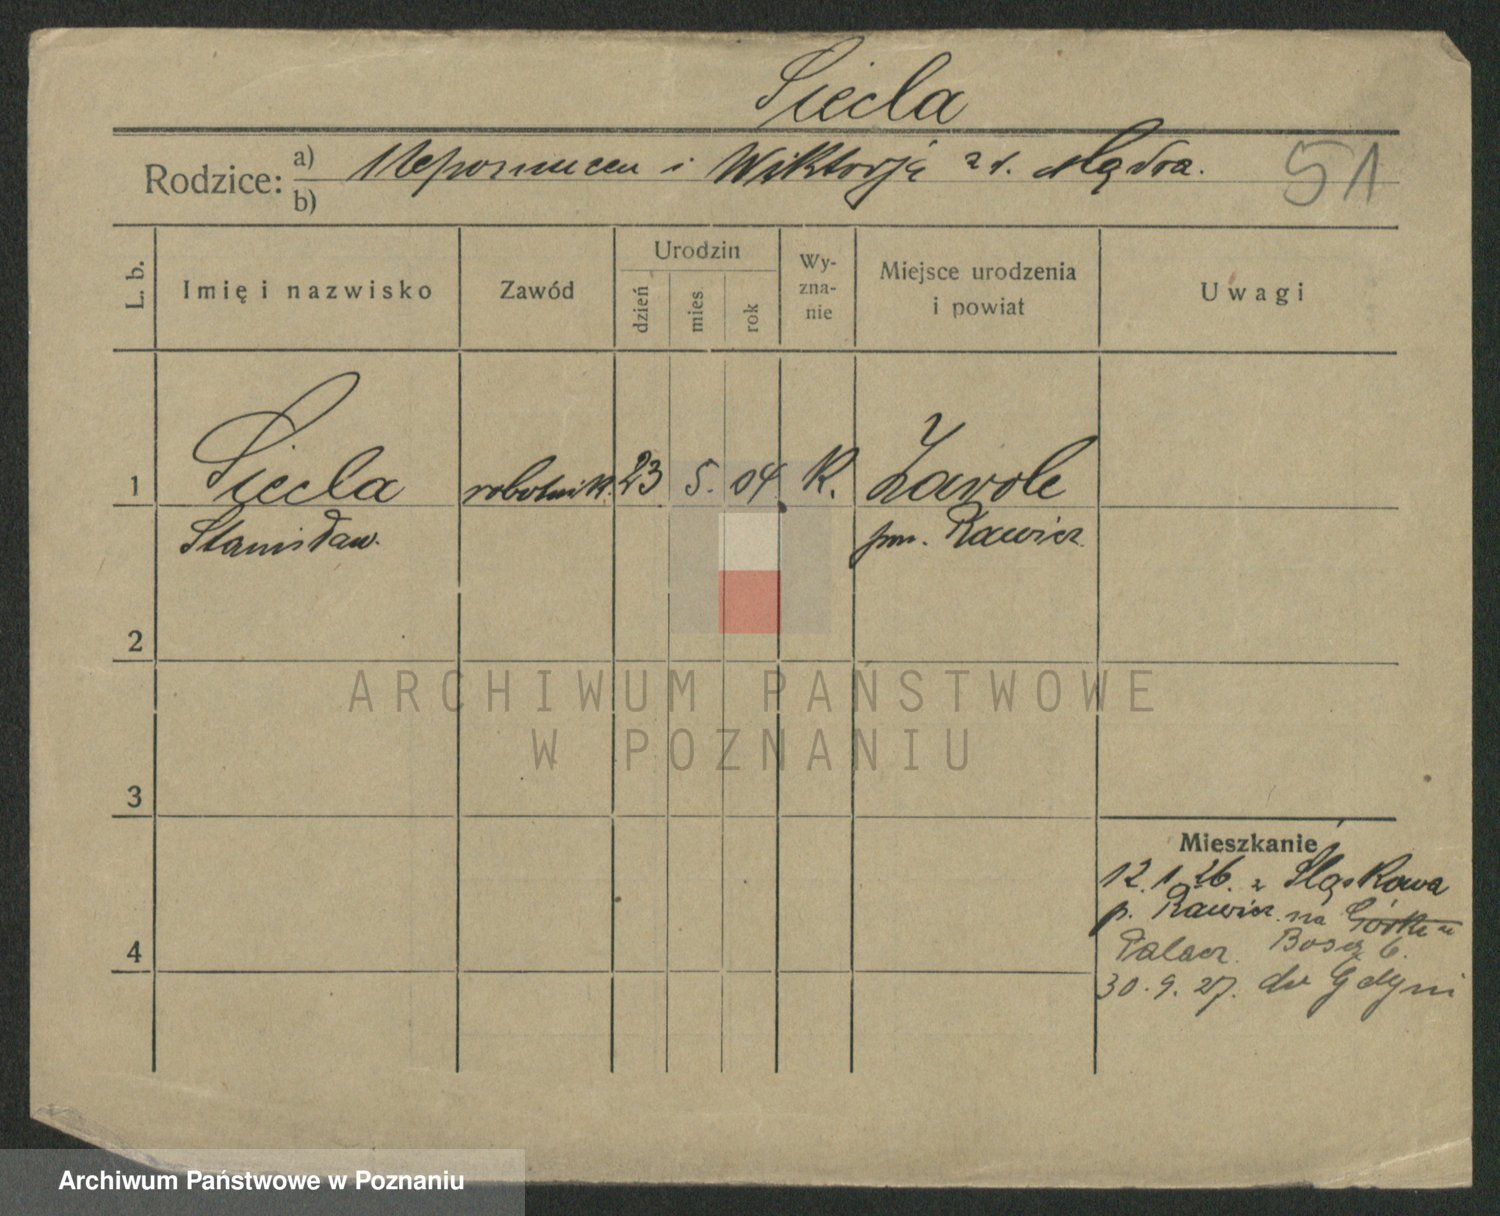 Siecla
Rodzice: a) Nepomucen i Wiktorja z d. Mądra. 51
b)
L. b. Imię i nazwisko Zawód Urodzin dzień mies. rok Wy-zna-nie Miejsce urodzenia i powiat Uwagi
1 Siecla robotnik. 23 5. 04 K.
Stanisław. pow. Rawicz
2
ARCHIWUM PAŃSTWOWE
W POZNANIU
3
Mieszkanie
12.1.26. z Śląskowa
p. Rawicz na
4
30.9.27. do Gdyni
Archiwum Państwowe w Poznaniu